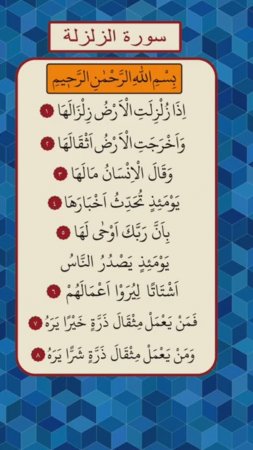 سورة الزلزلة
بِسْمِ اللهِ الرَّحْمٰنِ الرَّحِيمِ
اِذَا زُلْزِلَتِ الْاَرْضُ زِلْزَالَهَا ١
وَاَخْرَجَتِ الْاَرْضُ اَثْقَالَهَا ٢
وَقَالَ الْاِنْسَانُ مَالَهَا ٣
يَوْمَئِذٍ تُحَدِّثُ اَخْبَارَهَا ٤
بِاَنَّ رَبَّكَ اَوْحٰى لَهَا ٥
يَوْمَئِذٍ يَصْدُرُ النَّاسُ
اَشْتَاتًا لِيُرَوْا اَعْمَالَهُمْ ٦
فَمَنْ يَعْمَلْ مِثْقَالَ ذَرَّةٍ خَيْرًا يَرَهُ ٧
وَمَنْ يَعْمَلْ مِثْقَالَ ذَرَّةٍ شَرًّا يَرَهُ ٨